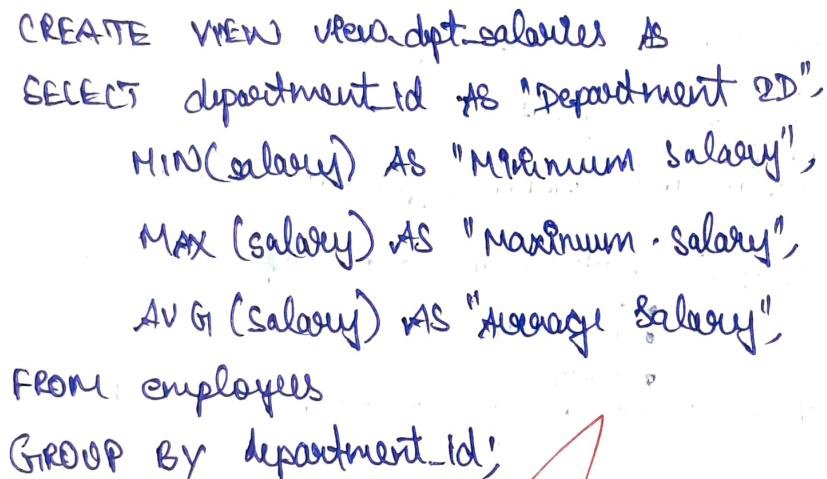 CREATE VIEW view_dpt_salaries AS
SELECT department_id AS "Department ID",
MIN(salary) AS "Minimum Salary",
MAX (salary) AS "Maximum Salary",
AVG (salary) AS "Average Salary",
FROM employees
GROUP BY department_id;